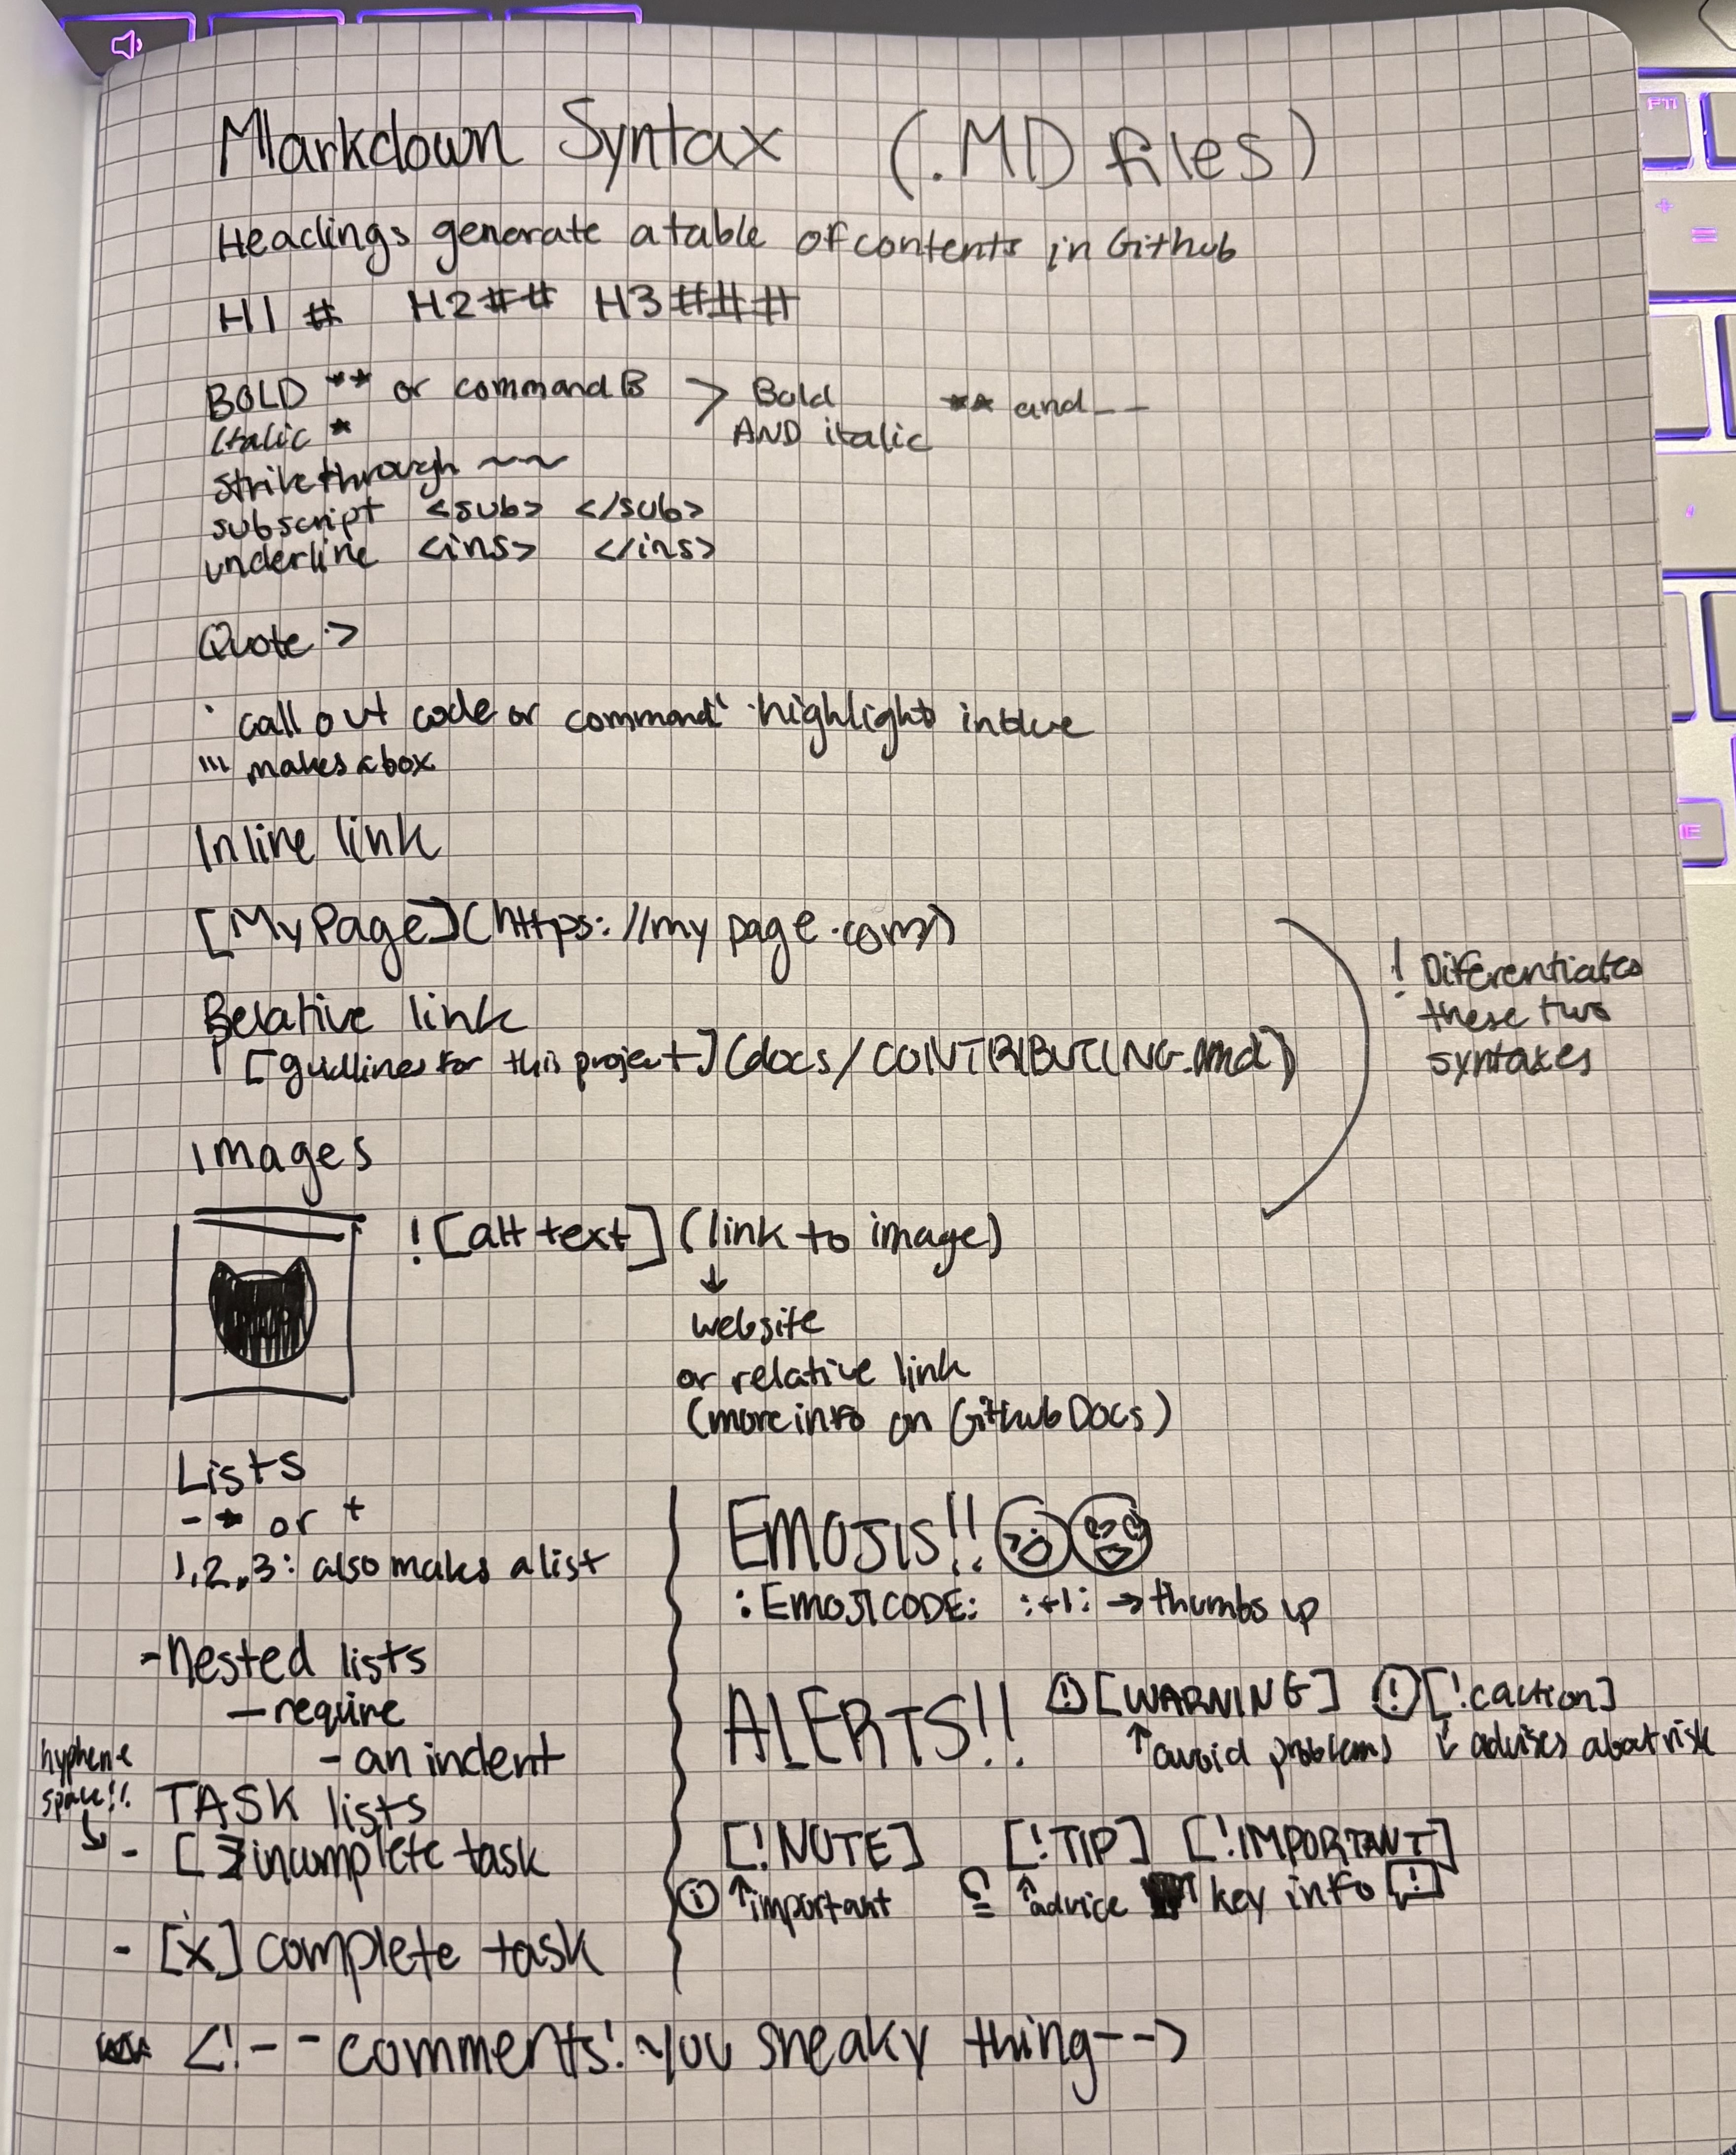 Markdown Syntax (.MD files)
Headings generate a table of contents in Github
H1 # H2 ## H3 ###
BOLD ** or command B > Bold AND italic ** and _ _
Italic *
strikethrough ~~
subscript <sub> </sub>
underline <ins> </ins>
Quote >
` call out code or command` highlight in blue
``` makes a box
Inline link
[My Page](https://mypage.com)
Relative link
[guidlines for this project](docs/CONTRIBUTING.md)
! Diferentiates
these two
syntaxes
Images
![alt text](link to image)
↓
website
or relative link
(more info on Github Docs)
Lists
- * or +
1, 2, 3: also makes a list
- Nested lists
- require
- an indent
hyphen &
space!!
TASK lists
- [ ] incomplete task
- [x] complete task
EMOJIS!!
:EMOJICODE: :+1: → thumbs up
ALERTS!! [WARNING] [!caution]
↑ avoid problems ↓ advises about risk
[!NOTE] [!TIP] [!IMPORTANT]
↑ important ↑ advice ↑ key info
<!-- comments! You sneaky thing-->